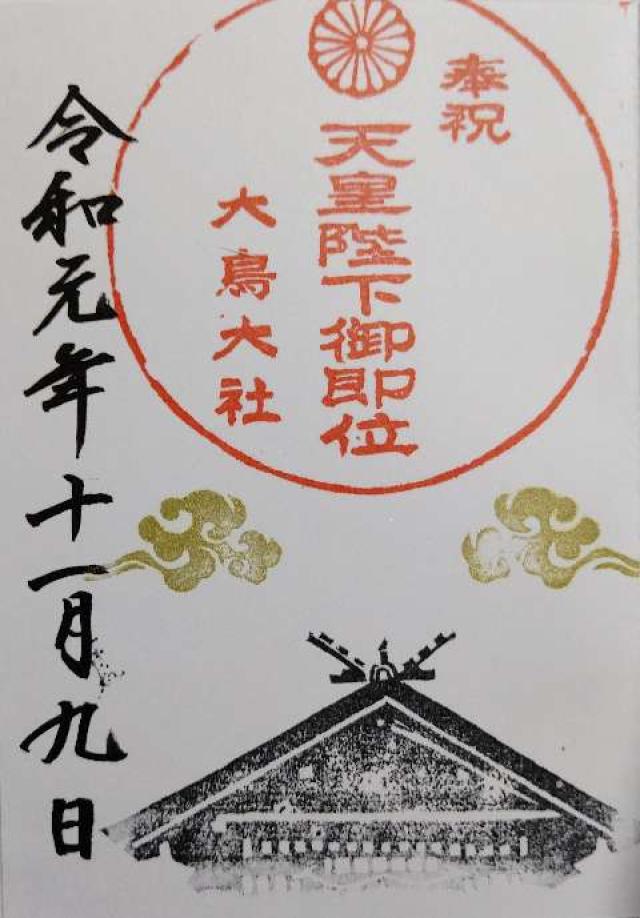 奉祝
天皇陛下御即位
大鳥大社
令和元年十一月九日